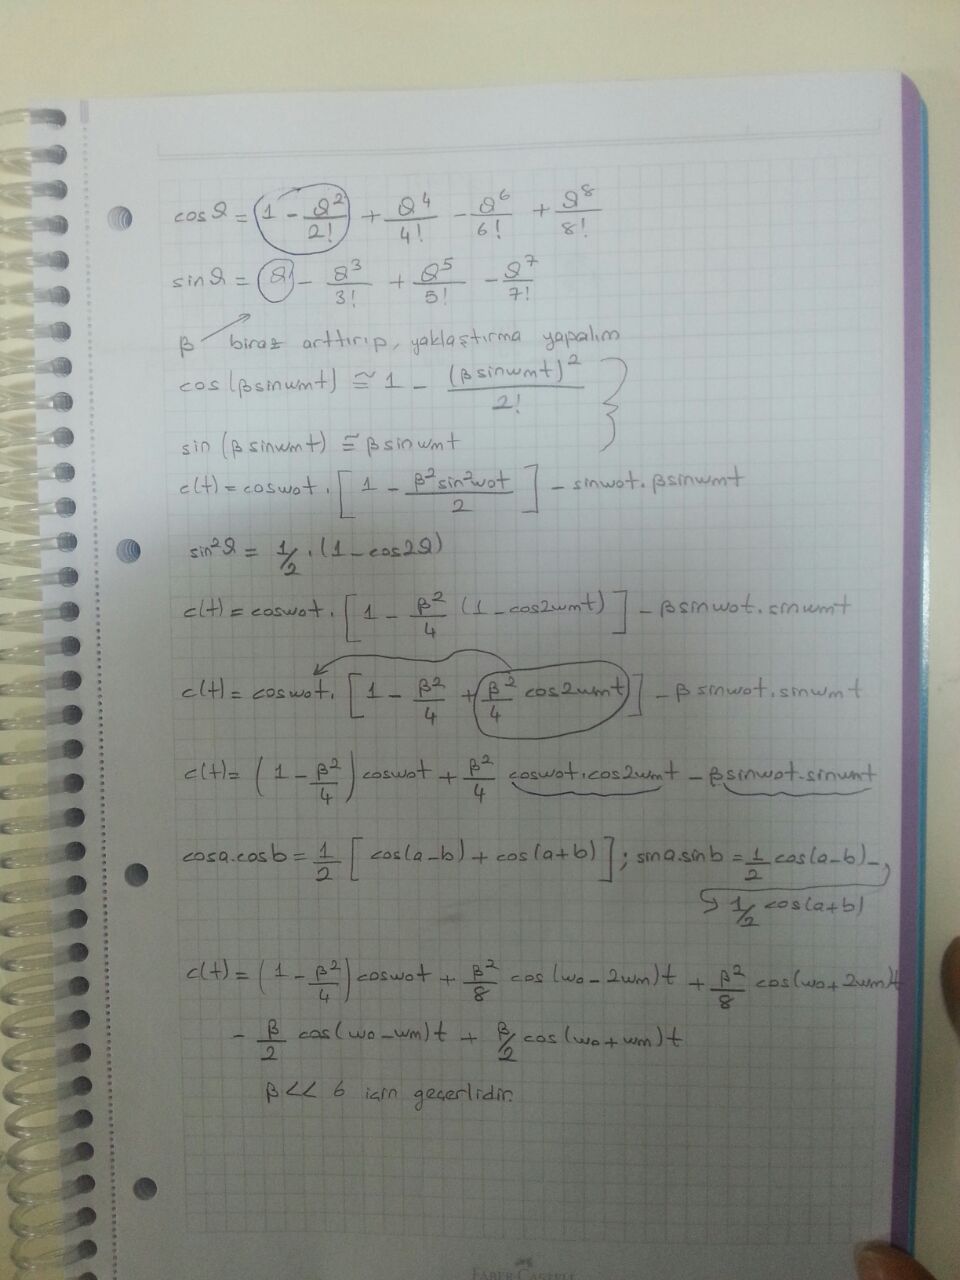 cosθ = 1 - θ²/2! + θ⁴/4! - θ⁶/6! + θ⁸/8!
sinθ = θ - θ³/3! + θ⁵/5! - θ⁷/7!
β biraz arttırıp, yaklaştırma yapalım
cos(βsinwmt) ≅ 1 - (βsinwmt)²/2!
sin(βsinwmt) ≅ βsinwmt
c(t) = coswot.[1 - β²sin²wot/2] - sinwot.βsinwmt
sin²θ = 1/2.(1-cos2θ)
c(t) = coswot.[1 - β²/4 (1-cos2wmt)] - βsinwot.sinwmt
c(t) = coswot.[1 - β²/4 + β²/4 cos2wmt] - βsinwot.sinwmt
c(t) = (1 - β²/4)coswot + β²/4 coswot.cos2wmt - βsinwot.sinwmt
cosa.cosb = 1/2 [cos(a-b) + cos(a+b)]; sinasinb = 1/2 cos(a-b) -
1/2 cos(a+b)
c(t) = (1 - β²/4)coswot + β²/8 cos(wo - 2wm)t + β²/8 cos(wo + 2wm)t
- β/2 cos(wo - wm)t + β/2 cos(wo + wm)t
β << 6 için geçerlidir.
FABER-CASTELL